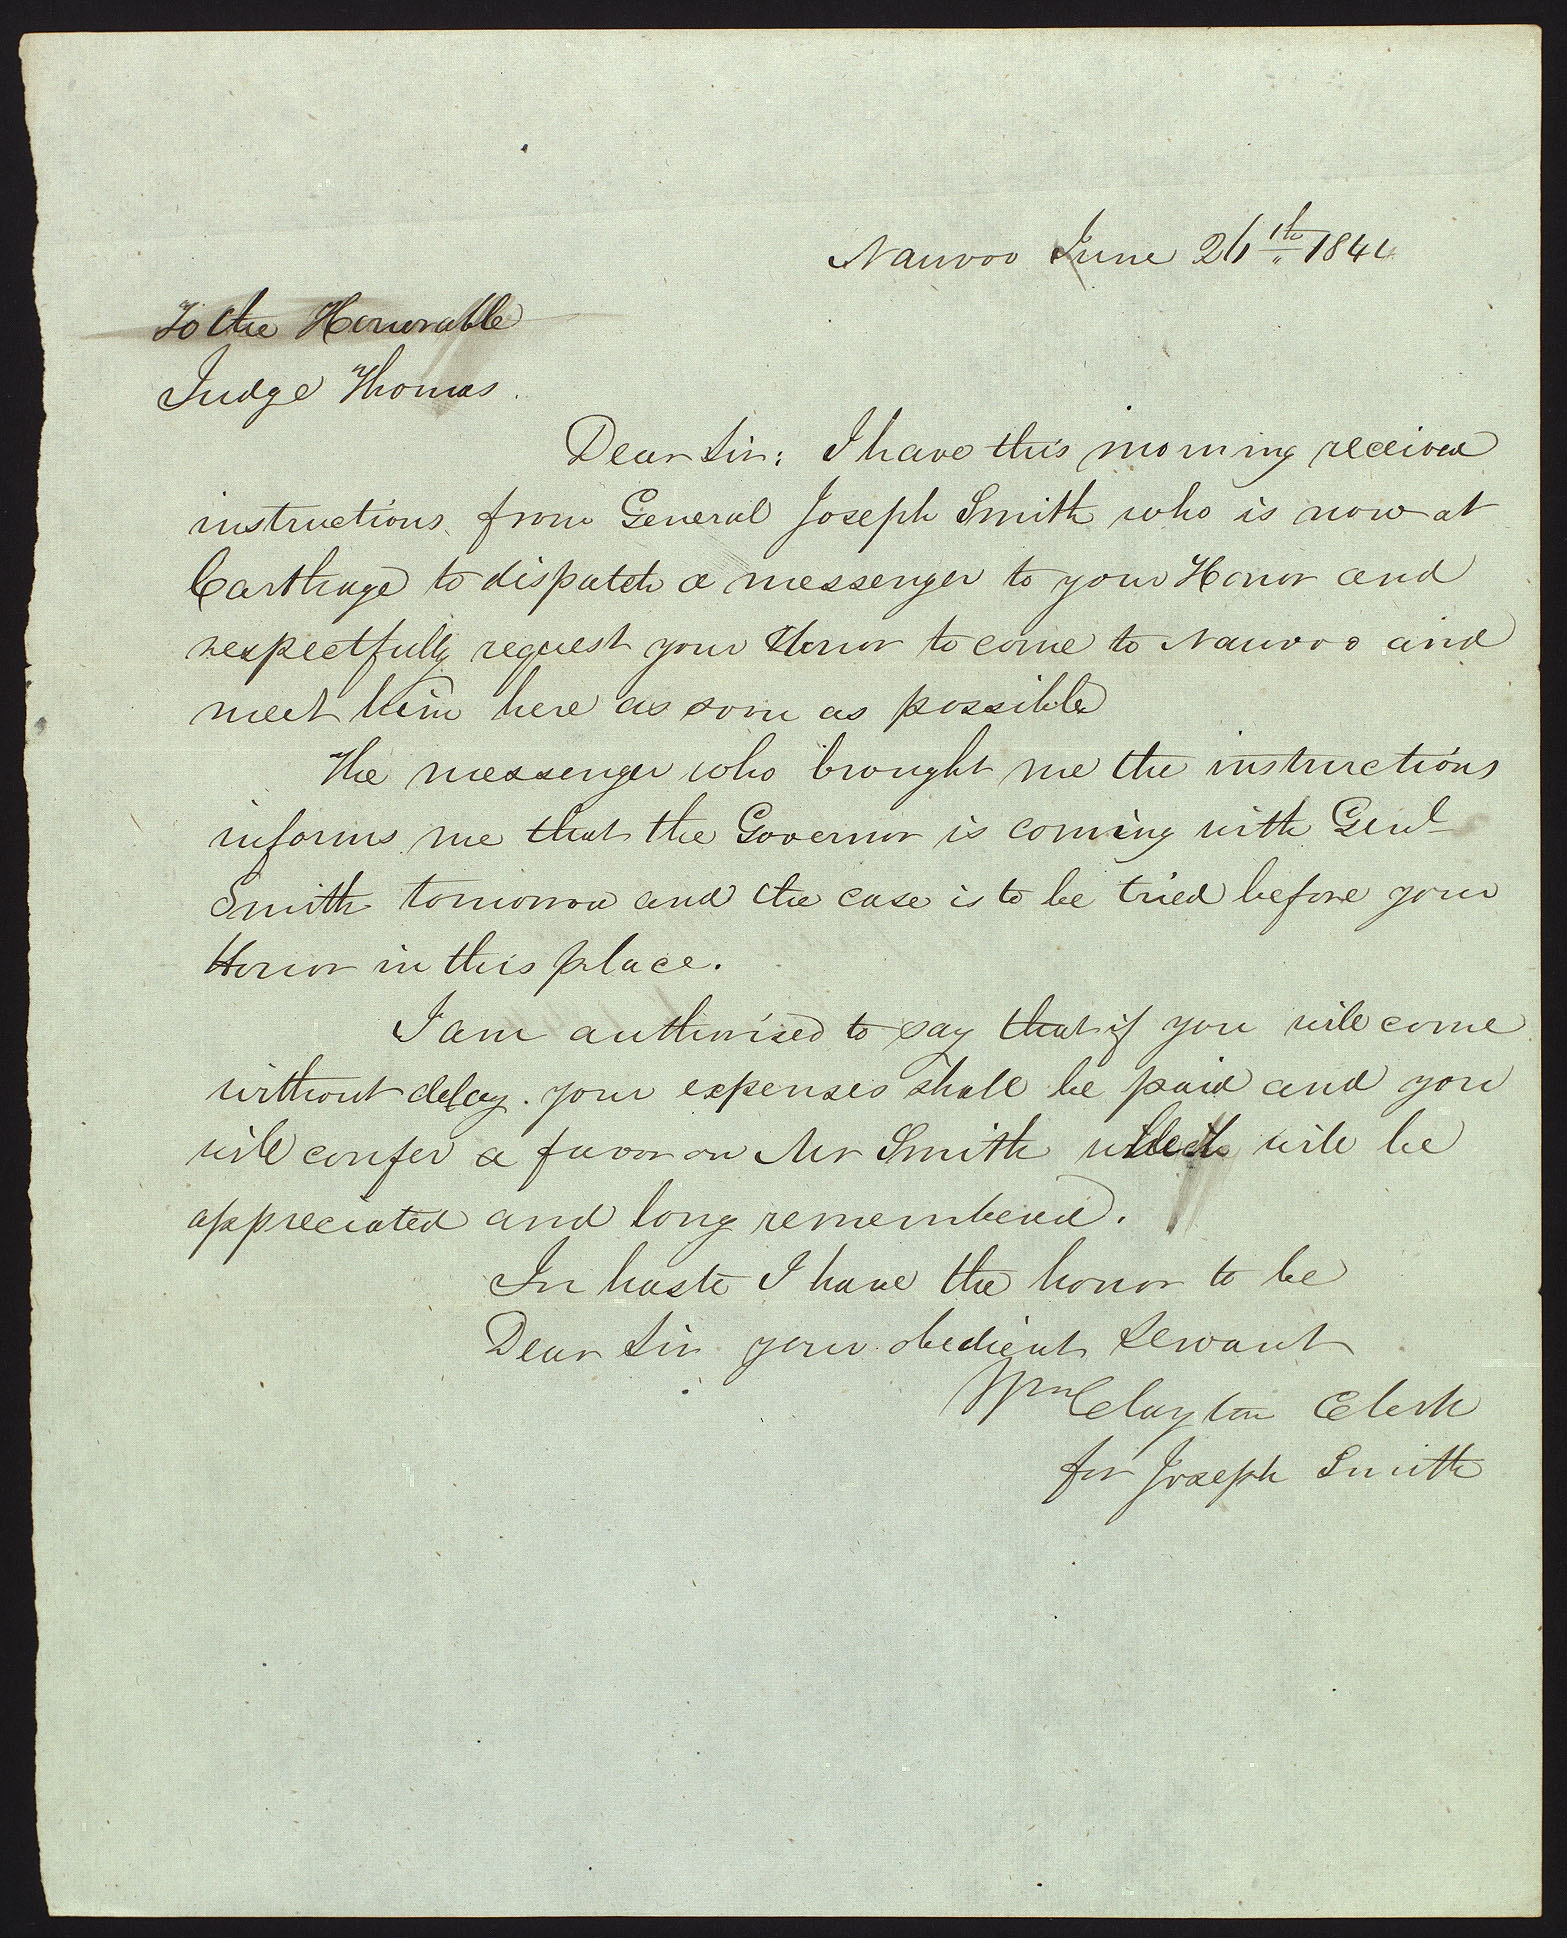 Nauvoo June 26th 1844
To the Honorable
Judge Thomas.
Dear Sir: I have this morning received
instructions from General Joseph Smith who is now at
Carthage to dispatch a messenger to your Honor and
respectfully request your Honor to come to Nauvoo and
meet him here as soon as possible
The messenger who brought me the instructions
informs me that the Governor is coming with Genl
Smith tomorrow and the case is to be tried before your
Honor in this place.
I am authorised to say that if you will come
without delay. your expenses shall be paid and you
will confer a favor on Mr Smith which will be
appreciated and long remembered.
In haste I have the honor to be
Dear Sir your obedient Servant
Wm Clayton Clerk
for Joseph Smith